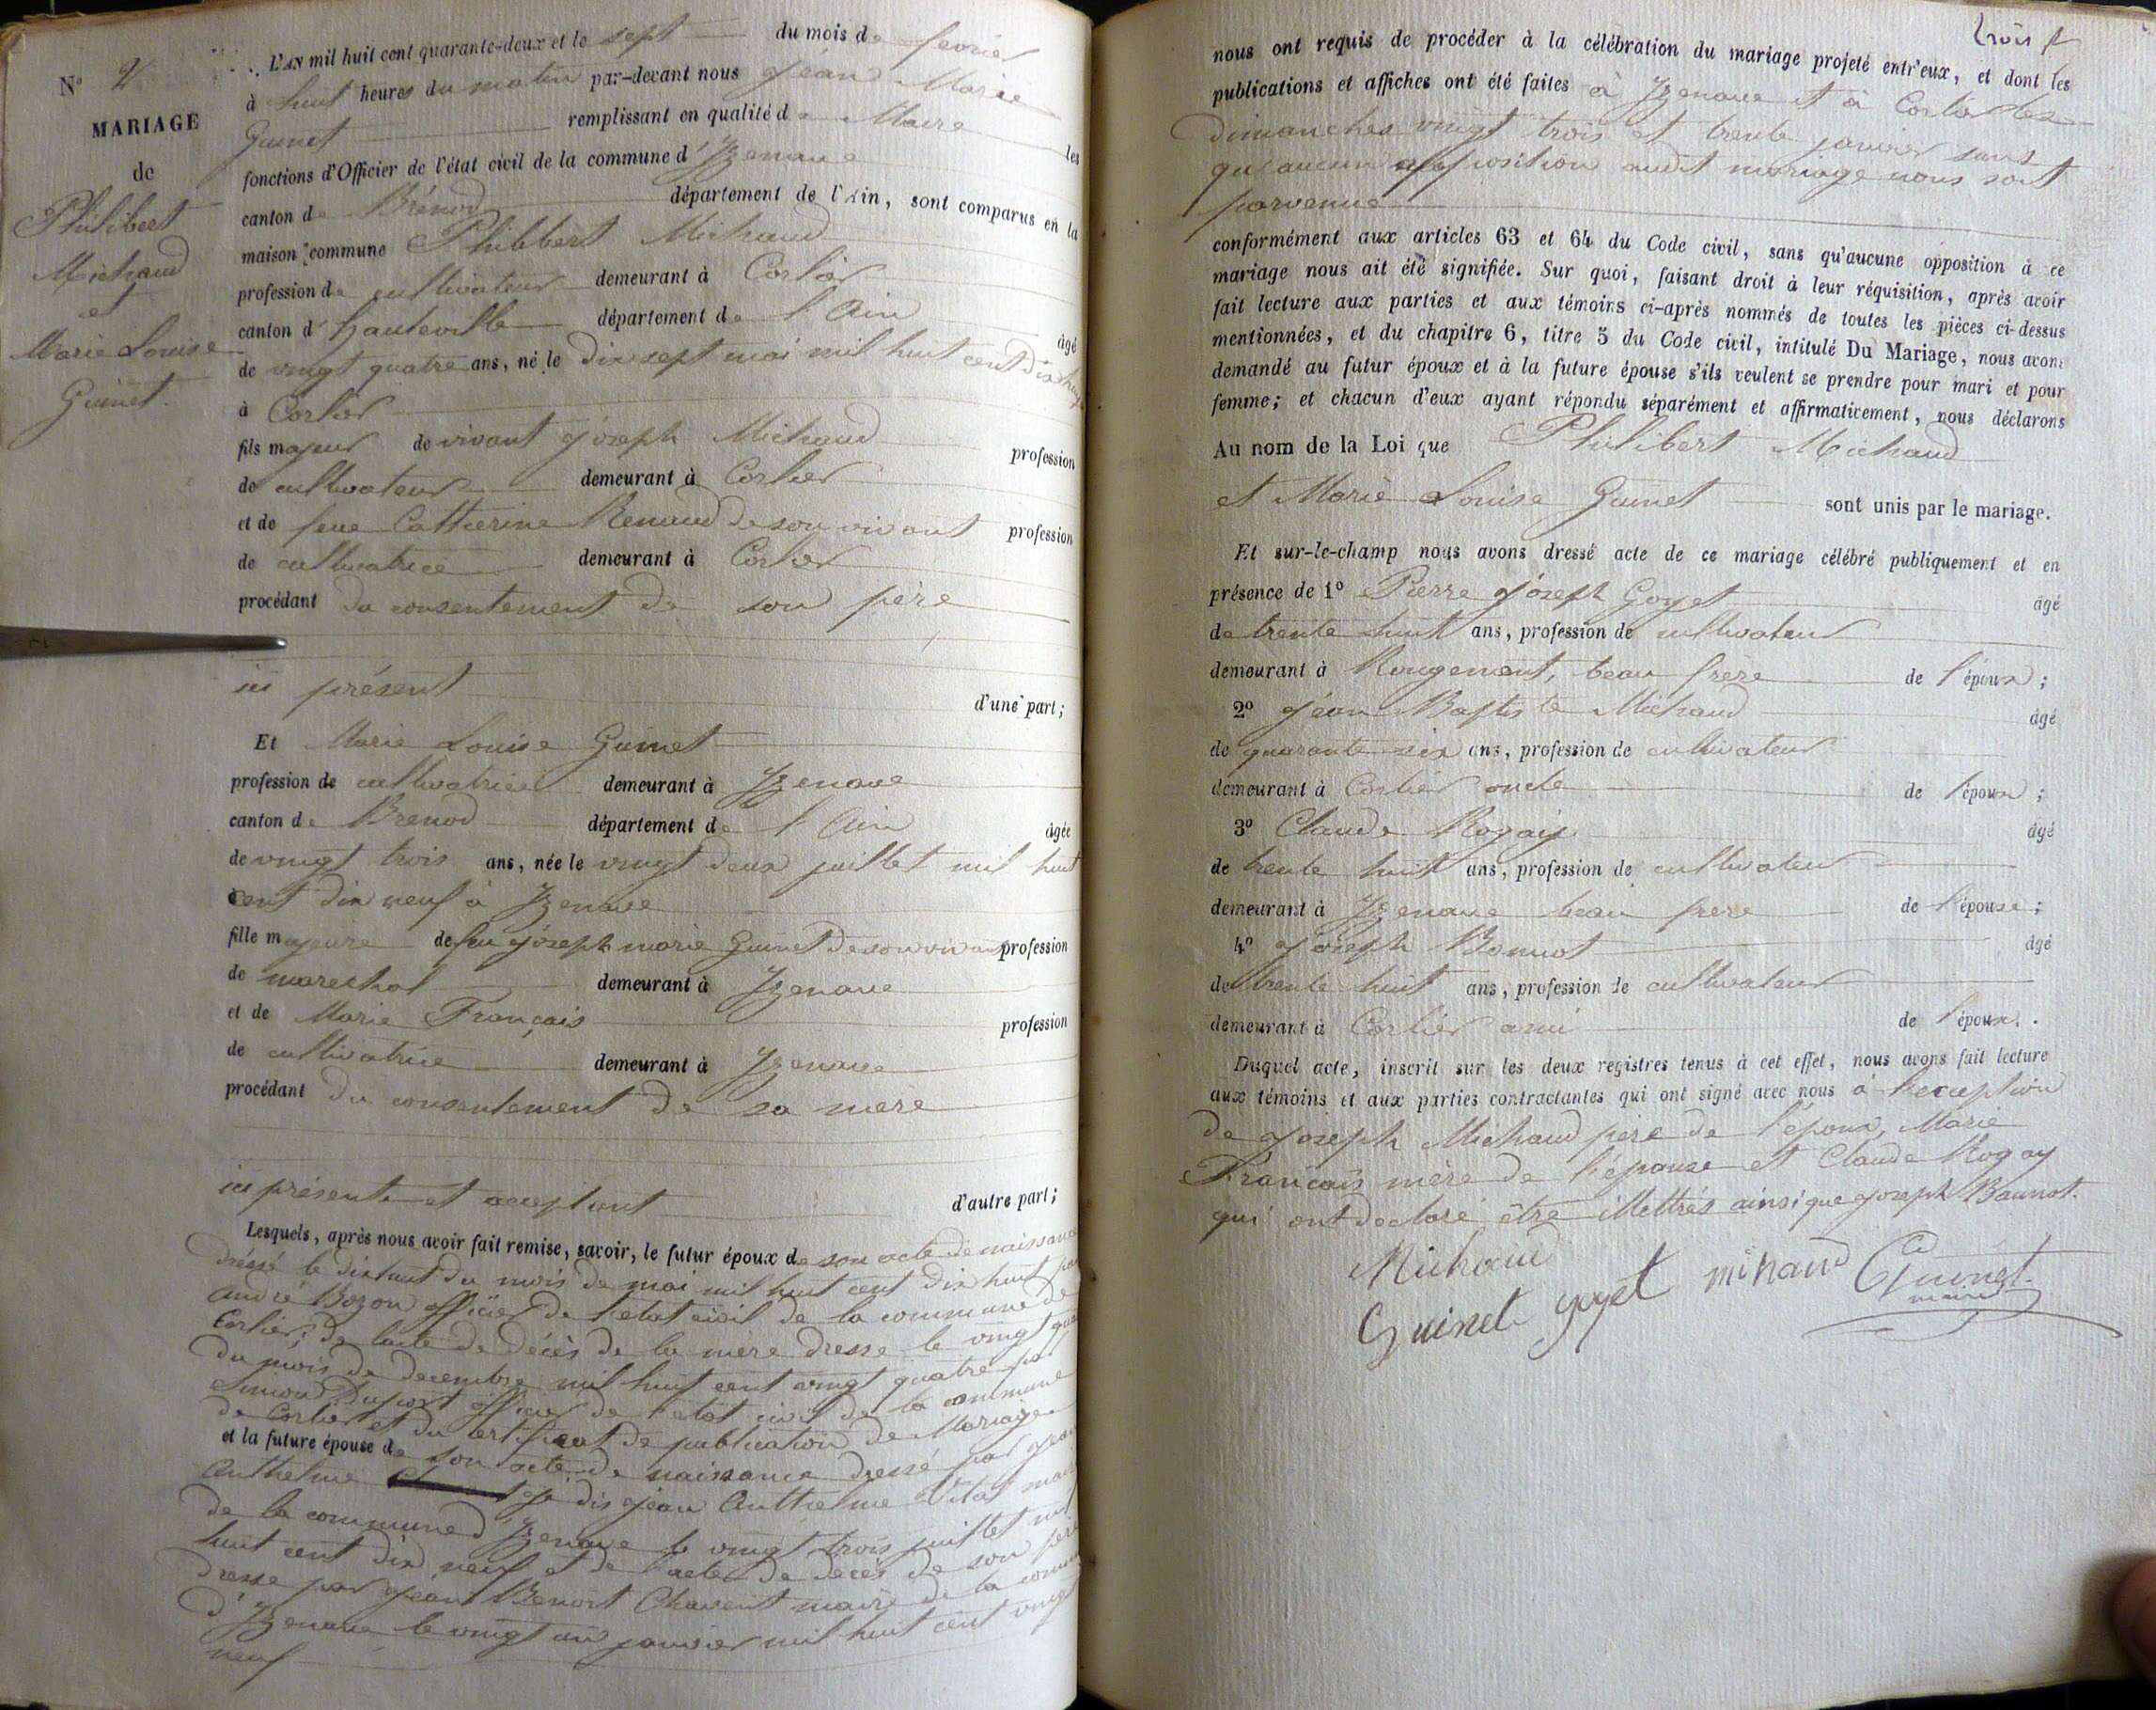 N° 2
MARIAGE
de
Philibert
Michaud
et
Marie Louise
Guinet.
L'AN mil huit cent quarante-deux et le sept du mois de fevrier
à huit heures du matin par-devant nous Jéan Marie
Guinet remplissant en qualité de Maire les
fonctions d'Officier de l'état civil de la commune d'Izenave
canton de Brénod département de l'Ain, sont comparus en la
maison commune Philibert Michaud
profession de cultivateur demeurant à Corlier
canton d'hauteville département de l'Ain âgé
de vingt quatre ans, né le dix sept mai mil huit cent dix huit
à Corlier
fils majeur de vivant Joseph Michaud profession
de cultivateur demeurant à Corlier
et de feue Catherine Renaud de son vivant profession
de cultivatrice demeurant à Corlier
procédant du consentement de son père
ici présent
d'une part;
Et Marie Louise Guinet
profession de cultivatrice demeurant à Izenave
canton de Brenod département de l'Ain âgée
de vingt trois ans, née le vingt deux juillet mil huit
cent dix neuf à Izenave
fille majeure de feu Joseph marie Guinet de son vivant profession
de marechal demeurant à Izenave
et de Marie Français profession
de cultivatrice demeurant à Izenave
procédant du consentement de sa mère
ici présente et acceptant d'autre part;
Lesquels, après nous avoir fait remise, savoir, le futur époux de son acte de naissance
dréssé le dixhuit du mois de mai mil huit cent dix huit par
andré Bozon officier de l'etat civil de la commune de
Corlier; de l'acte de décès de la mère dresse le vingt
du mois de decembre mil huit cent vingt quatre par
Simon Duport officier de l'etat civil de la commune
de Corlier et du certificat de publication de Mariage
et la future épouse de son acte de naissance dressé par Jean
Anthelme je dis Jéan Anthelme Vital maire
de la commune d'Izenave le vingt trois juillet mil
huit cent dix neuf et de l'acte de décès de son père
dresse par Jéan Benoit Chavent maire de la commune
d'Izenave le vingt un janvier mil huit cent vingt
neuf
trois
nous ont requis de procéder à la célébration du mariage projeté entr'eux, et dont les
publications et affiches ont été faites à Izenave et à Corlier les
dimanches vingt trois et trente janvier sans
qu'aucun opposition audit mariage nous soit
parvenue
conformément aux articles 63 et 64 du Code civil, sans qu'aucune opposition à ce
mariage nous ait été signifiée. Sur quoi, faisant droit à leur réquisition, après avoir
fait lecture aux parties et aux témoins ci-après nommés de toutes les pièces ci-dessus
mentionnées, et du chapitre 6, titre 5 du Code civil, intitulé Du Mariage, nous avons
demandé au futur époux et à la future épouse s'ils veulent se prendre pour mari et pour
femme; et chacun d'eux ayant répondu séparément et affirmativement, nous déclarons
Au nom de la Loi que Philibert Michaud
et Marie Louise Guinet sont unis par le mariage.
Et sur-le-champ nous avons dressé acte de ce mariage célébré publiquement et en
présence de 1° Pierre Jóseph Goyet âgé
de trente huit ans, profession de cultivateur
demeurant à Rougemont, beau frère de l'époux;
2° Jéan Baptiste Michaud âgé
de quarante six ans, profession de cultivateur
demeurant à Corlier oncle de l'époux;
3° Claude Rogay âgé
de trente huit ans, profession de cultivateur
demeurant à Izenave beau frere de l'épouse;
4° Joseph Bonnot âgé
de trente huit ans, profession de cultivateur
demeurant à Corlier ami de l'époux.
Duquel acte, inscrit sur les deux registres tenus à cet effet, nous avons fait lecture
aux témoins et aux parties contractantes qui ont signé avec nous à l'exception
de Joseph Michaud père de l'époux, Marie
Français mère de l'épouse et Claude Rogay
qui ont déclaré être illettrés ainsi que Joseph Baunot.
Michaud
Guinet goyet michaud Guinet
maire